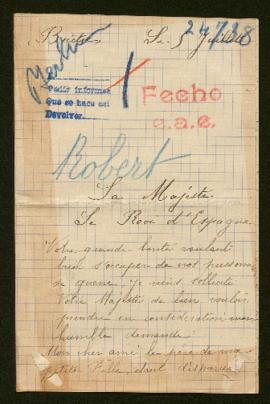 24718
Le 5 Juillet
Berlin
Pedir informes
Que se haga así
Devolver.
Fecho
e.a.e.
Robert
Sa Majéste
Le Roi d'Espagne
Votre grande bonté voulant
bien s'occuper de nos prisonniers
de guerre, je viens sollicité
Votre Majesté de bien vouloir
prendre en considération mon
humble demande.
Mon cher ami le père de ma
petite Fille étant disparu